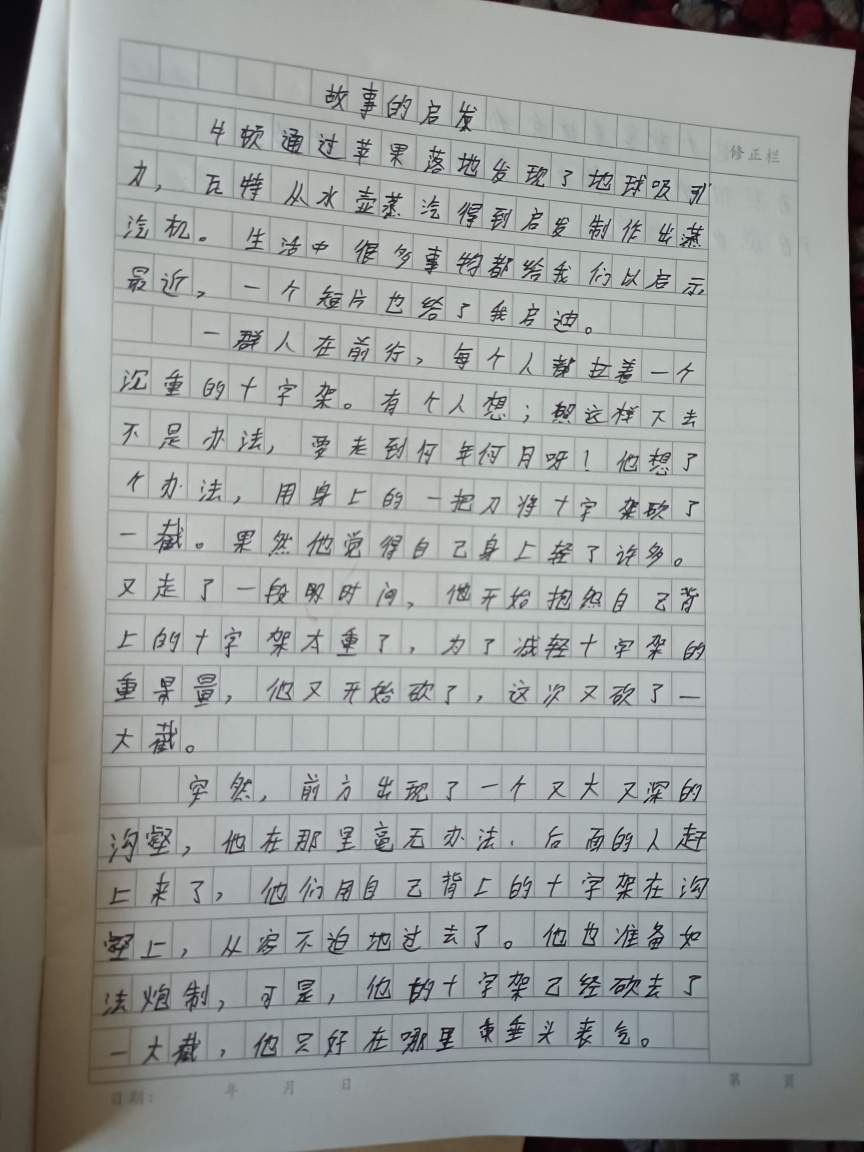 故事的启发
修正栏
牛顿通过苹果落地发现了地球吸引
力，瓦特从水壶蒸汽得到启发制作出蒸
汽机。生活中很多事物都给我们以启示，
最近，一个短片也给了我启迪。
一群人在前行，每个人都拉着一个
沉重的十字架。有个人想；照这样下去
不是办法，要走到何年何月呀！他想了
个办法，用身上的一把刀将十字架砍了
一截。果然他觉得自己身上轻了许多。
又走了一段时间，他开始抱怨自己背
上的十字架太重了，为了减轻十字架的
重量，他又开始砍了，这次又砍了一
大截。
突然，前方出现了一个又大又深的
沟壑，他在那里毫无办法．后面的人赶
上来了，他们用自己背上的十字架在沟
壑上，从容不迫地过去了。他也准备如
法炮制，可是，他的十字架已经砍去了
一大截，他只好在哪里垂头丧气。
日期： 年 月 日
第 页